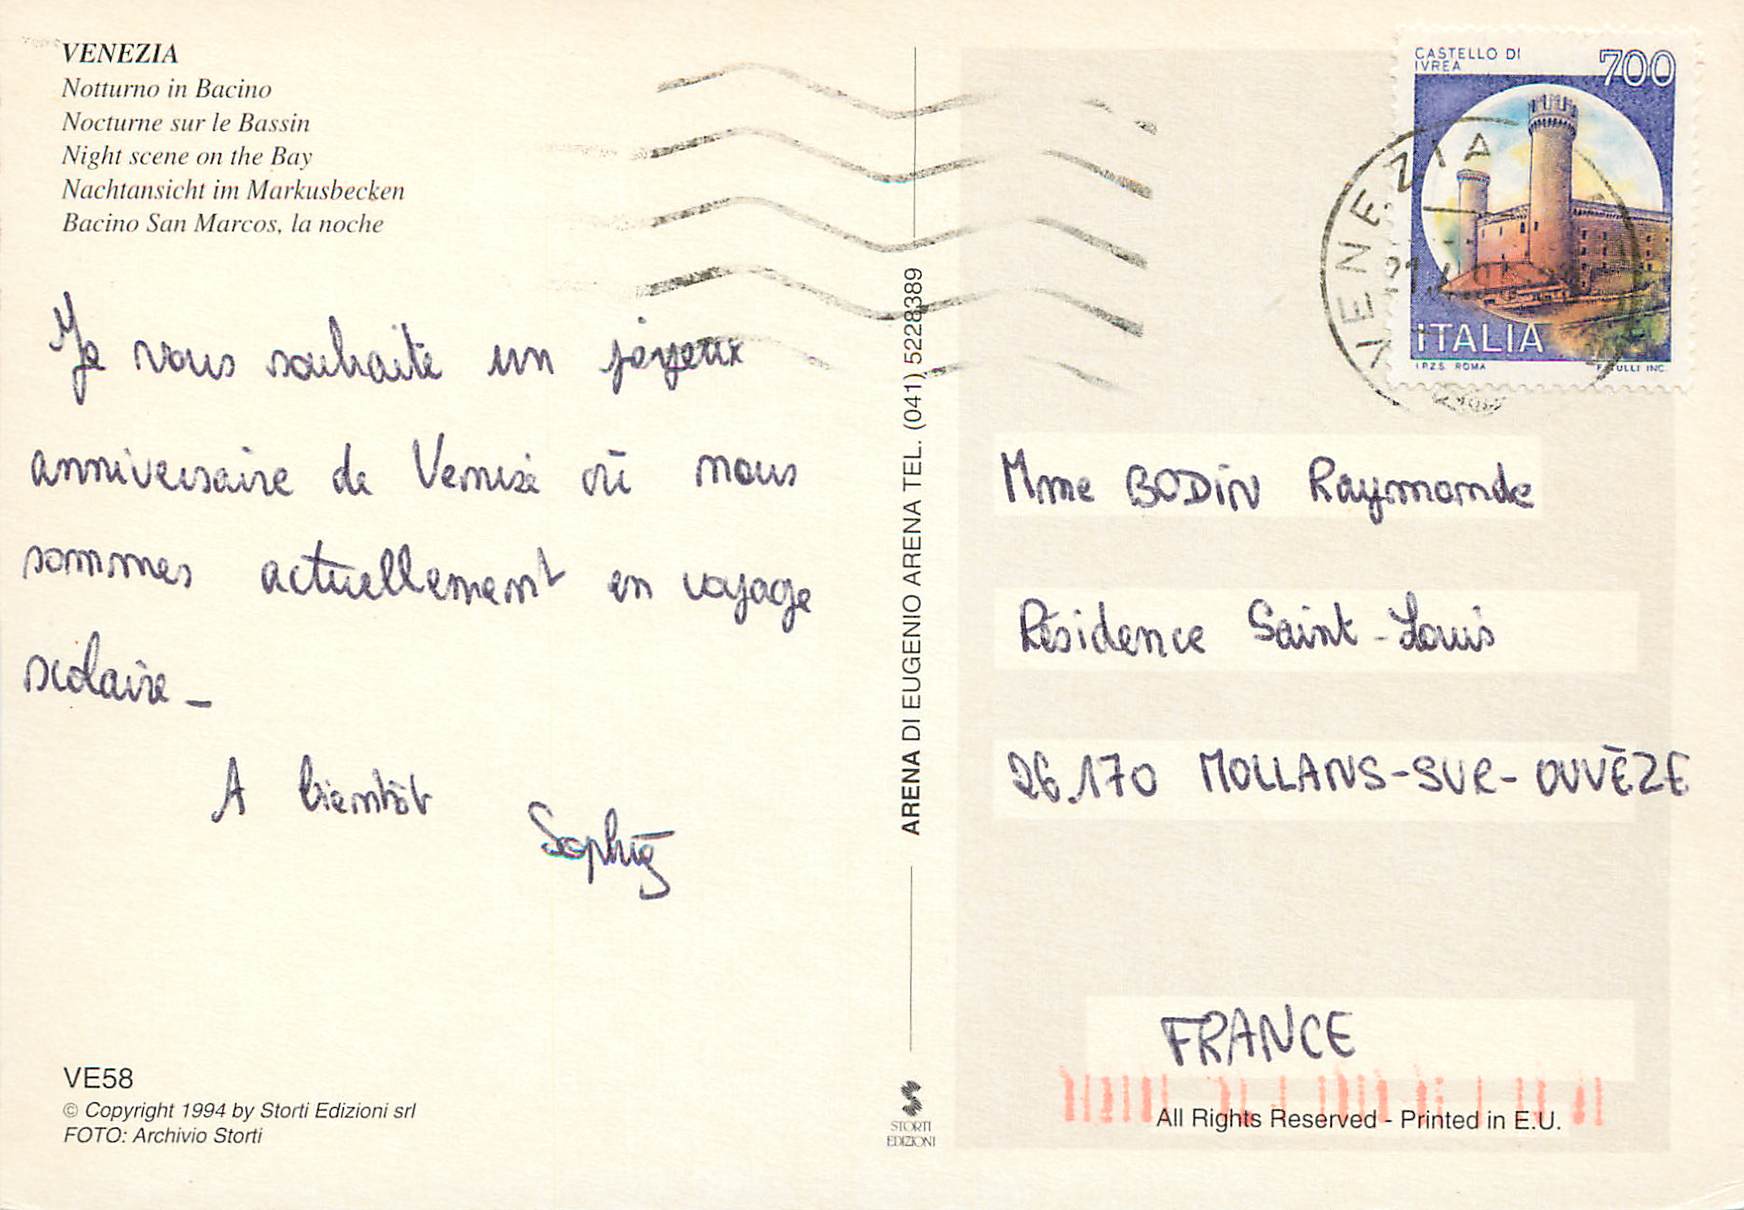 VENEZIA
Notturno in Bacino
Nocturne sur le Bassin
Night scene on the Bay
Nachtansicht im Markusbecken
Bacino San Marcos, la noche
Je vous souhaite un joyeux
anniversaire de Venise où nous
sommes actuellement en voyage
scolaire_
A bientôt
Sophie
VE58
© Copyright 1994 by Storti Edizioni srl
FOTO: Archivio Storti
ARENA DI EUGENIO ARENA TEL. (041) 5228389
STORTI
EDIZIONI
CASTELLO DI
IVREA
700
ITALIA
I.P.Z.S. ROMA
INC.
VENEZIA
Mme BODIN Raymonde
Résidence Saint-Louis
26.170 MOLLANS-SUR-OUVÈZE
FRANCE
All Rights Reserved - Printed in E.U.